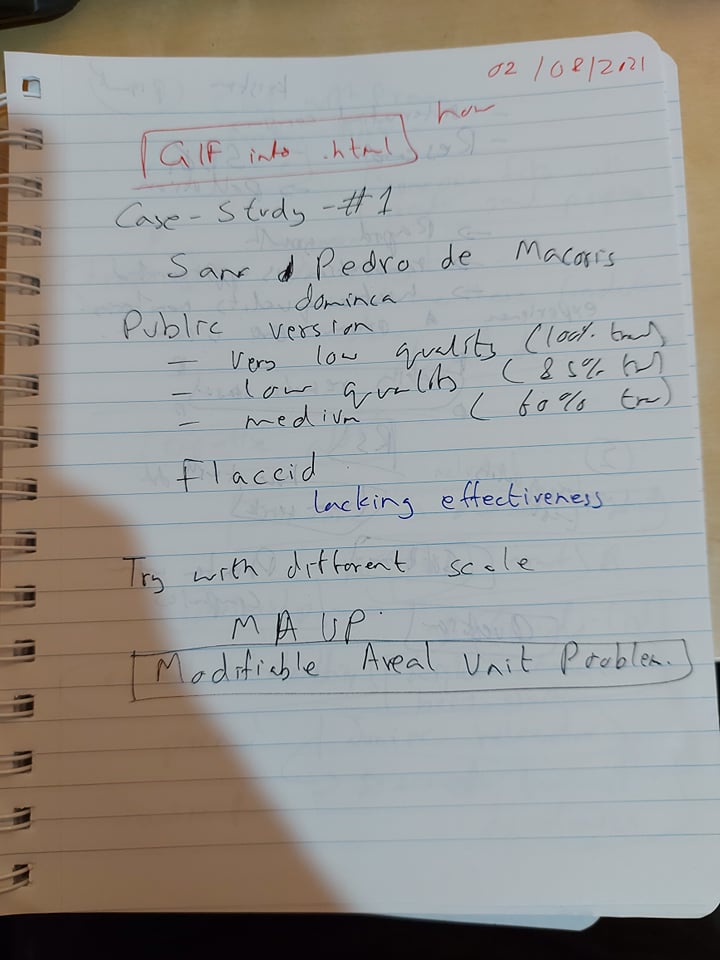 02/08/2021
how
GIF into .html
Case-Study-#1
San Pedro de Macoris
dominca
Public version
- very low quality (100% tra)
- low quality (85% tra)
- medium (60% tra)
Flaccid
lacking effectiveness
Try with different scale
MAUP
Modifiable Areal Unit Problem.